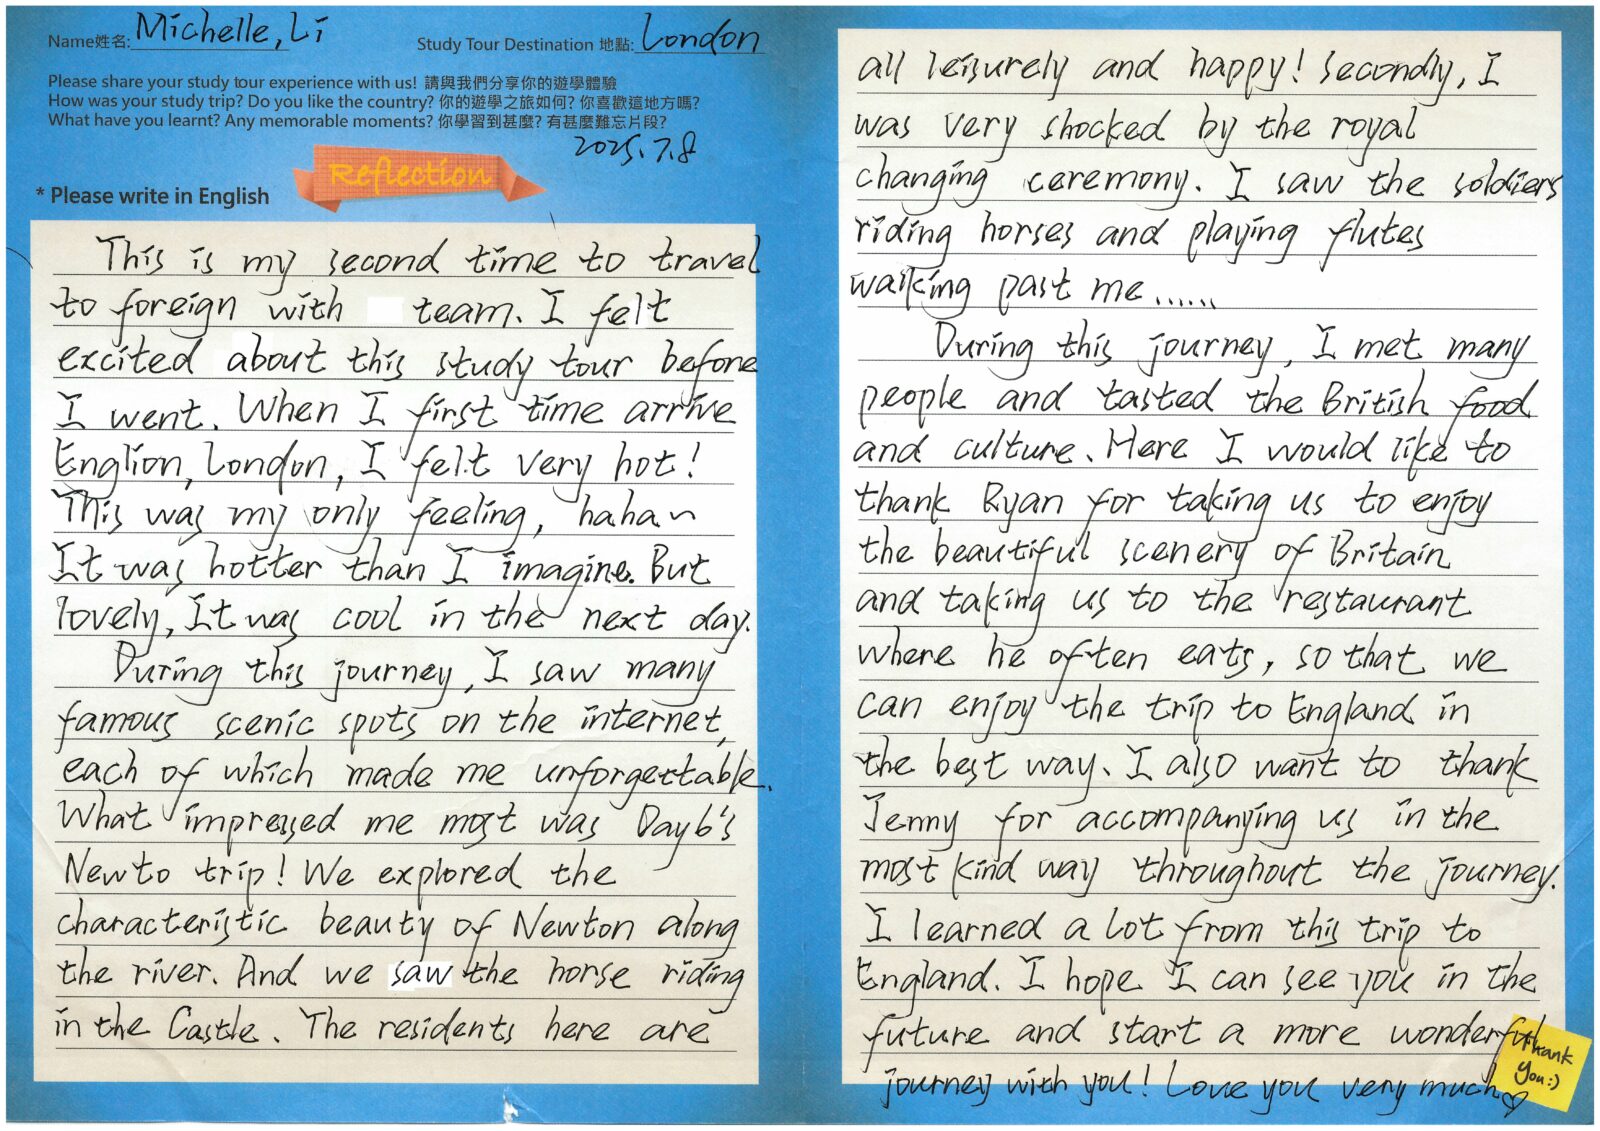 Name姓名: Michelle, Li
Study Tour Destination 地點: London
Please share your study tour experience with us! 請與我們分享你的遊學體驗
How was your study trip? Do you like the country? 你的遊學之旅如何? 你喜歡這地方嗎?
What have you learnt? Any memorable moments? 你學習到甚麼? 有甚麼難忘片段?
2025.7.8
Reflection
* Please write in English
This is my second time to travel
to foreign with team. I felt
excited about this study tour before
I went. When I first time arrive
Englion, London, I felt very hot!
This was my only feeling, haha~
It was hotter than I imagine. But
lovely, It was cool in the next day.
During this journey, I saw many
famous scenic spots on the internet,
each of which made me unforgettable.
What impressed me most was Dayb's
Newto trip! We explored the
characteristic beauty of Newton along
the river. And we saw the horse riding
in the Castle. The residents here are
all leisurely and happy! Secondly, I
was very shocked by the royal
changing ceremony. I saw the soldiers
riding horses and playing flutes
walking past me......
During this journey, I met many
people and tasted the British food
and culture. Here I would like to
thank Ryan for taking us to enjoy
the beautiful scenery of Britain
and taking us to the restaurant
where he often eats, so that we
can enjoy the trip to England in
the best way. I also want to thank
Jenny for accompanying us in the
most kind way throughout the journey.
I learned a lot from this trip to
England. I hope I can see you in the
future and start a more wonderful
journey with you! Love you very much♡
Thank
You:)